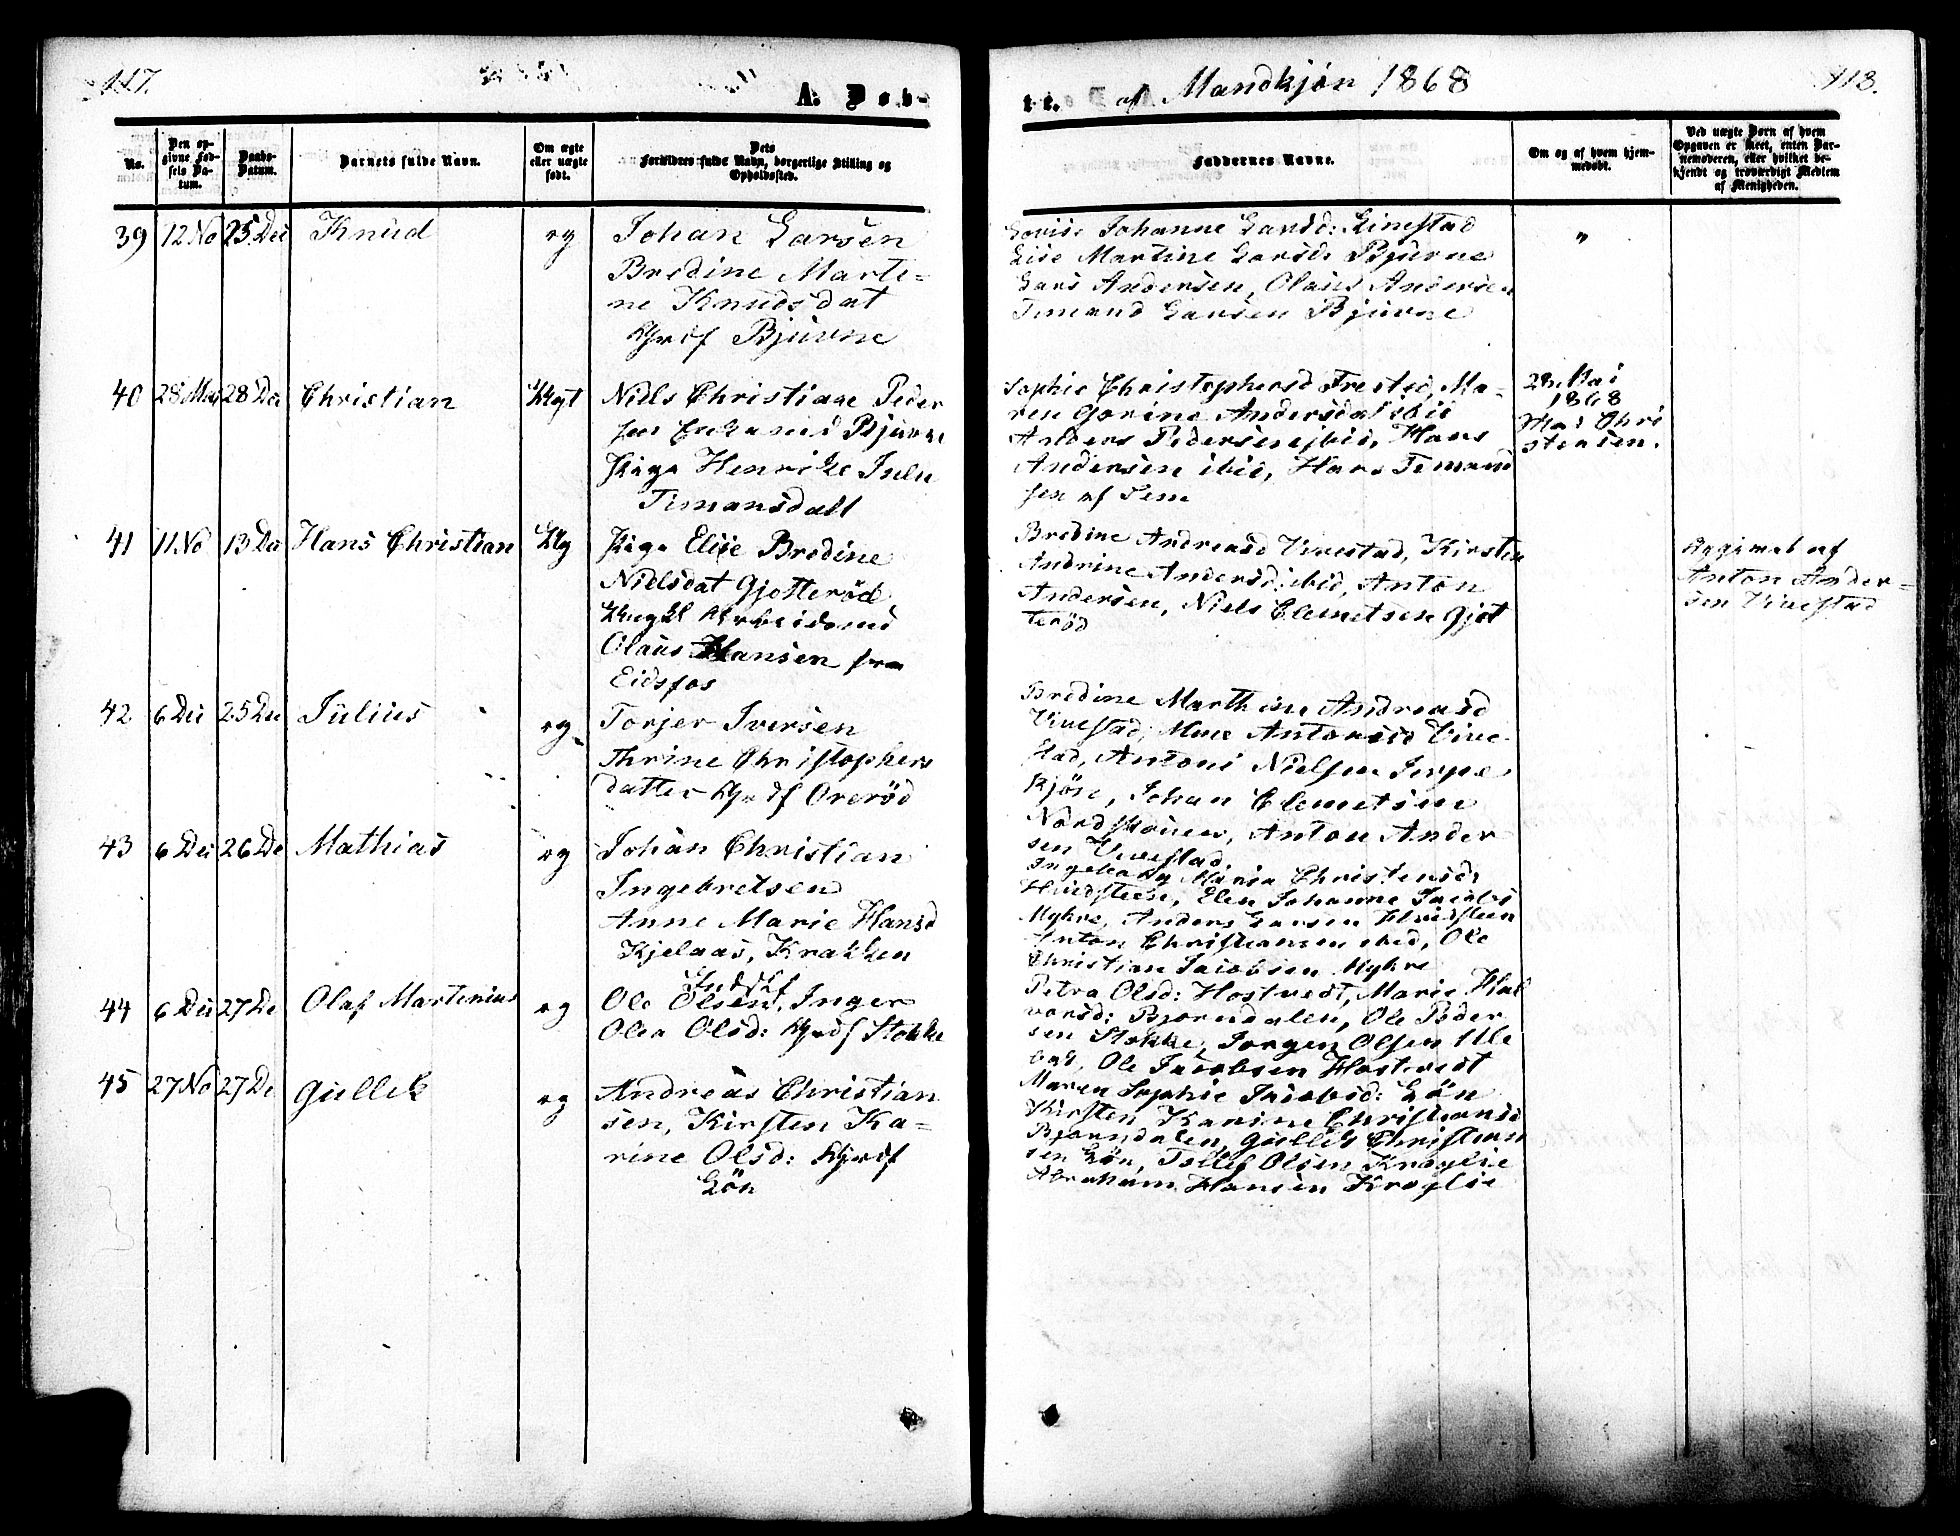 117.
A. Døb-
No.
Den opgivne Fødsels Datum.
Daabs-Datum.
Barnets fulde Navn.
Om ægte eller uægte født.
Dets Forældres fulde Navn, borgerlige Stilling og Opholdssted.
39 12 No 25 Dei Knud eg Johan Larsen
Bredine Marti-
ne Knudsdat
Bjuvne
40 28 Mai 28 De Christian Uegt Niels Christian Peder
sen Bjuvne
Pige Henrikke Julu
Timansdatt
41 11 No 13 De Hans Christian Ueg Pige Elise Bredine
Nielsdat Gjotterød
Ungkl Arbeidsmd
Olaus Hansen fra
Eidsfos
42 6 Dei 25 De Julius eg Torjer Iversen
Thrine Christophers
datter Ororød
43 6 Dei 26 De Mathias eg Johan Christian
Ingebretsen
Anne Marie Hansd
Kjelaas, Krakken
44 6 Dei 27 De Olaf Martenius eg Ole Olsen, Inger
Olea Olsd: Stokke
45 27 No 27 De Gullek eg Andreas Christian
sen, Kirsten Ka-
rine Olsd:
Løn
tt. af Mandkjøn 1868
118.
Faddernes Navne.
Om og af hvem hjemmedøbt.
Ved uægte Børn af hvem Opgaven er skeet, enten Barnemoderen, eller hvilket bekjendt og troværdigt Medlem af Menigheden.
Lovise Johanne Larsd: Linestad "
Lise Martine Larsd: Bjuvne
Lars Andersen, Olaus Andersen
Timand Larsen Bjuvne
Sophie Christophersd Frested, Ma-
ren Gorine Andersdat ibid
Anders Pedersen ibid, Hans
Andersen ibid, Hans Timand
sen af Sem
28 Mai
1868
Chri
stensen.
Bredine Andreasd Vivestad, Kirsten
Andrine Andersd: ibid, Anton
Andersen, Niels Clemetsen Gjot
terød
Opgivet af
Anton Ander-
sen Vivestad
Bredine Marthine Andreasd
Vivestad, Antonsd Vive
stad, Antoni Nielsen
Johan Clemetsen
Anton Ander
sen Vivestad.
Ingeborg Maria Christensd:
Hvidsteen, Elen Johanne Jacobs
Myhre, Anders Larsen Hvidsteen
Anton Christiansen ibid, Ole
Christian Jacobsen Myhre
Petra Olsd: Hostvedt, Marie Hal
vorsd: Bjorndalen, Ole Peder
sen Stokke, Jorgen Olsen Ule
bak, Ole Jacobsen Hostvedt
Maren Sophie Jacobsd: Løn
Kirsten Karine Christiansd
Bjorndalen, Gullek Christian
sen Løn, Tollef Olsen Kroglie
Abraham Hansen Kroglie